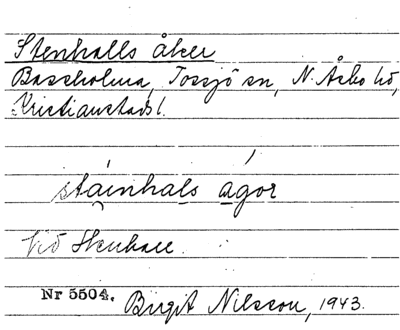 Stenhalls åker
Baseholma, Tossjö sn, N. Åsbo hd,
Kristianstads l.
stainhals agor
hd Stenhall.
Nr 5504. Birgit Nilsson, 1943.